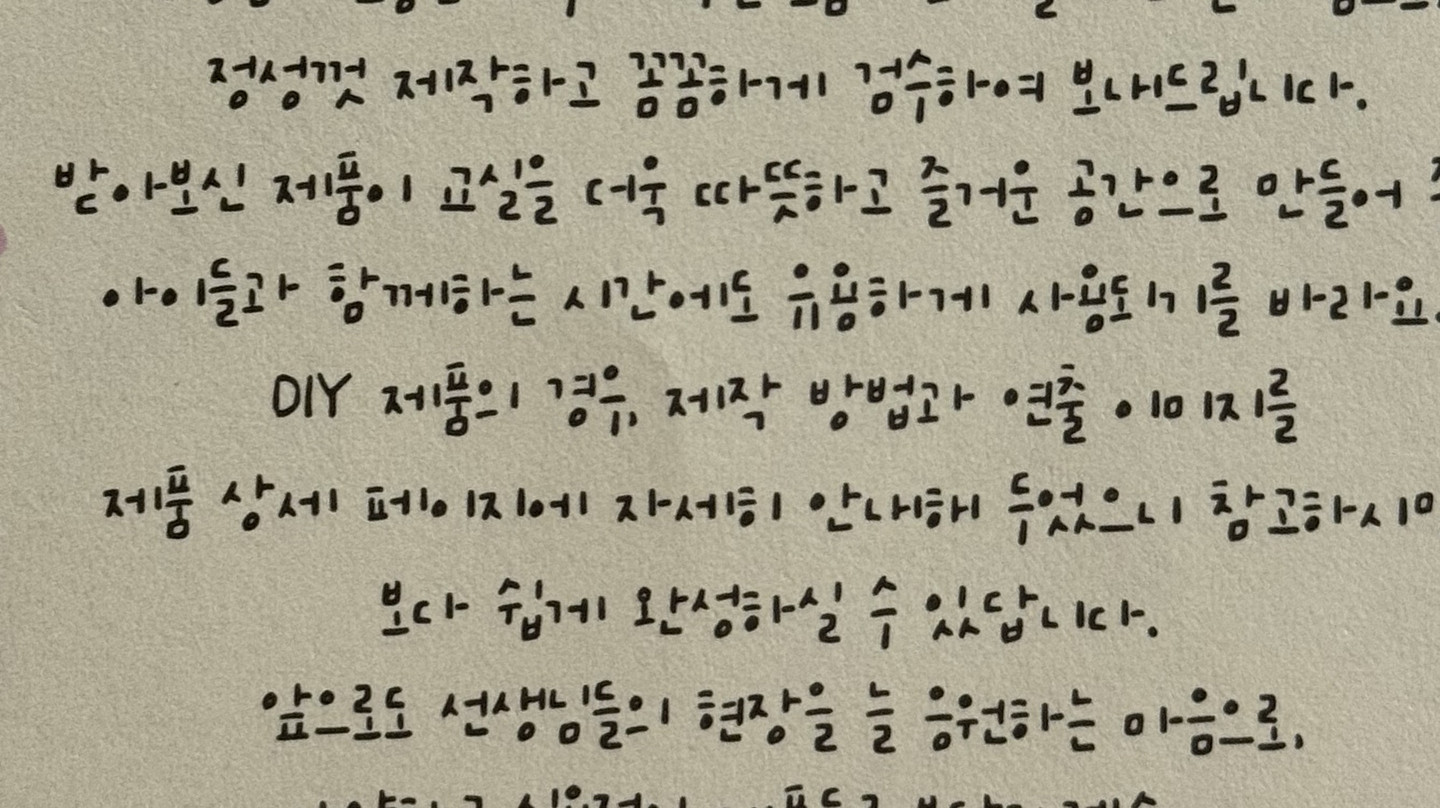 정성껏 제작하고 꼼꼼하게 검수하여 보내드립니다.
받아보신 제품이 교실을 더욱 따뜻하고 즐거운 공간으로 만들어
아이들과 함께하는 시간에도 유용하게 사용되기를 바라요.
DIY 제품의 경우, 제작 방법과 연출 이미지를
제품 상세 페이지에 자세히 안내해 두었으니 참고하시면
보다 쉽게 완성하실 수 있답니다.
앞으로도 선생님들의 현장을 늘 응원하는 마음으로,